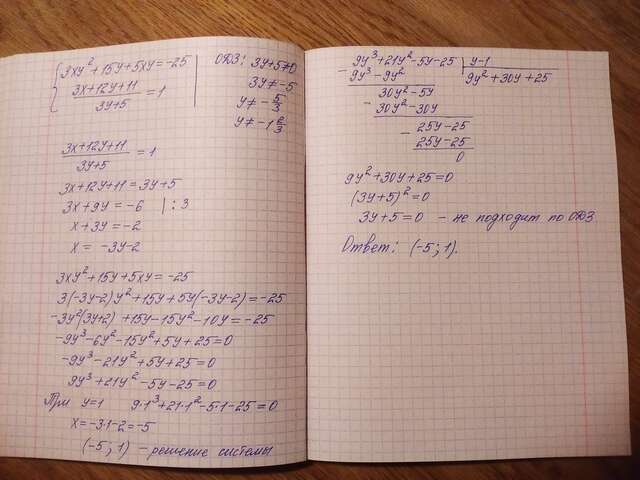 3xy² + 15y + 5xy = -25
(3x + 12y + 11)/(3y + 5) = 1
ОДЗ: 3y + 5 ≠ 0
3y ≠ -5
y ≠ -5/3
y ≠ -1 2/3
(3x + 12y + 11)/(3y + 5) = 1
3x + 12y + 11 = 3y + 5
3x + 9y = -6 | : 3
x + 3y = -2
x = -3y - 2
3xy² + 15y + 5xy = -25
3(-3y-2)y² + 15y + 5y(-3y-2) = -25
-3y²(3y+2) + 15y - 15y² - 10y = -25
-9y³ - 6y² - 15y² + 5y + 25 = 0
-9y³ - 21y² + 5y + 25 = 0
9y³ + 21y² - 5y - 25 = 0
При y=1 9·1³ + 21·1² - 5·1 - 25 = 0
x = -3·1 - 2 = -5
(-5; 1) - решение системы
- 9y³ + 21y² - 5y - 25 | y - 1
9y³ - 9y² | 9y² + 30y + 25
30y² - 5y
- 30y² - 30y
- 25y - 25
25y - 25
0
9y² + 30y + 25 = 0
(3y + 5)² = 0
3y + 5 = 0 - не подходит по ОДЗ
Ответ: (-5; 1).